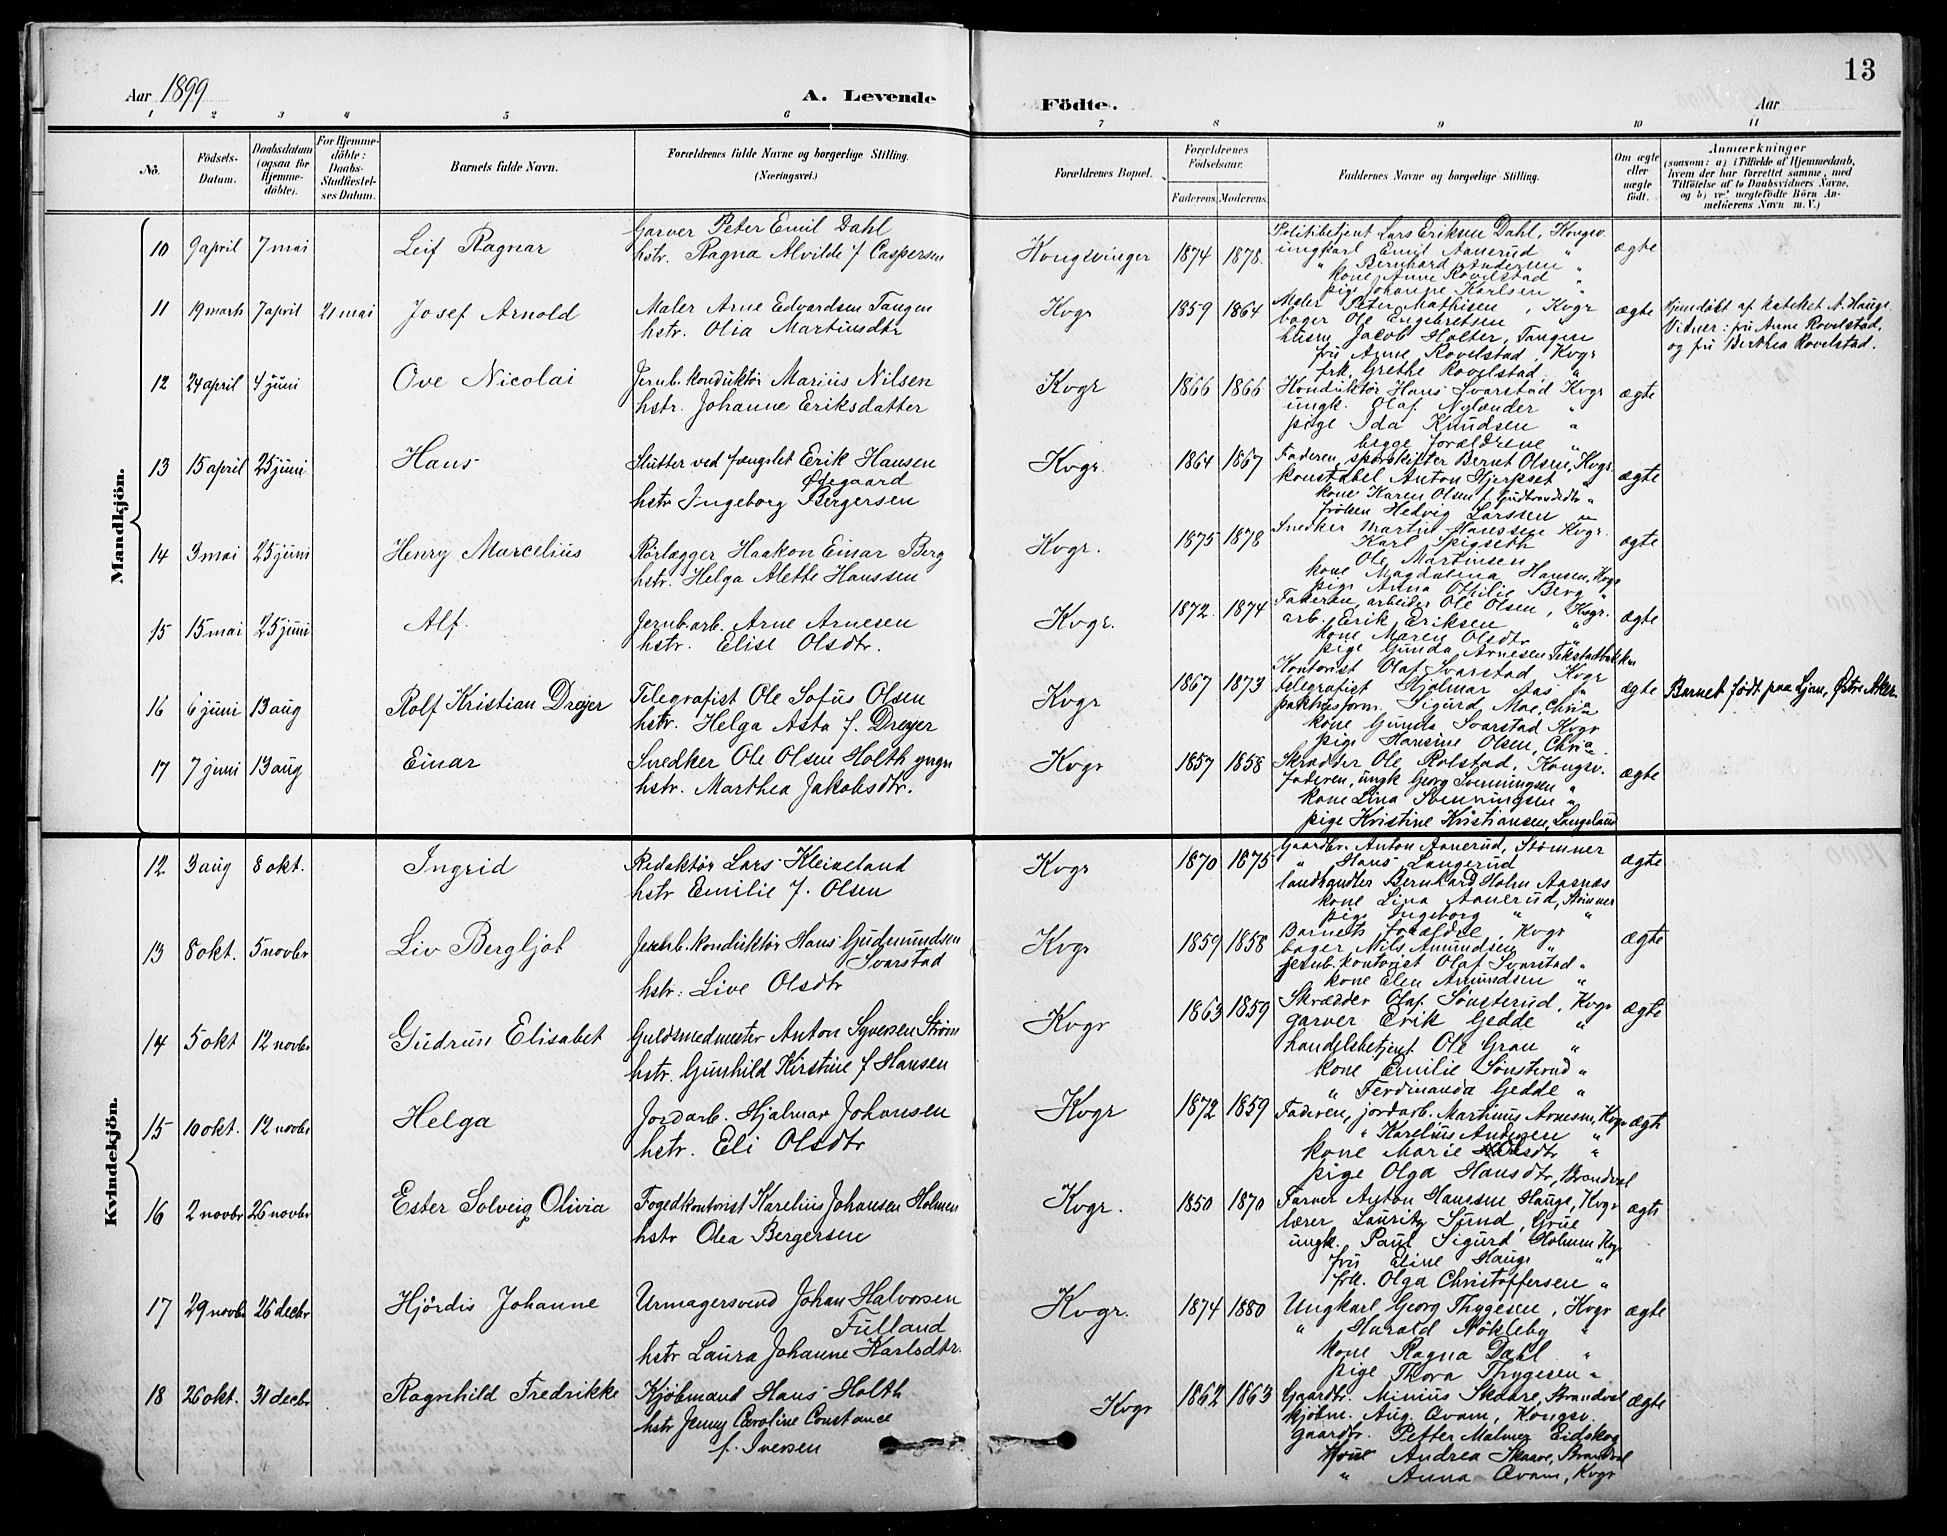 Aar 1899
A. Levende
Födte.
Aar
13
1 2 3 4 5 6 7 8 9 10 11
No.
Födsels-Datum.
Daabsdatum (ogsaa for Hjemme-döbte).
For Hjemme-döbte: Daabs-Stadfæstel-ses Datum.
Barnets fulde Navn.
Forældrenes fulde Navne og borgerlige Stilling.
(Næringsvei.)
Forældrenes Bopæl.
Forældrenes Födselsaar.
Faderens. Moderens.
Faddernes Navne og borgerlige Stilling.
Om ægte eller uægte födt.
Anmærkninger
(saasom: a) i Tilfælde af Hjemmedaab,
hvem der har forrettet samme, med
Tilföielse af to Daabsvidners Navne,
og b) ved uægtefödte Börn An-
melderens Navn m. V.)
Mandkjön.
10 9 april 7 mai Leif Ragnar
Garver Peter Emil Dahl
hstr. Ragna Alvilde f Caspersen
Kongsvinger 1874 1878.
Politibetjent Lars Eriksen Dahl, Kongsv.
ungkarl Emil Aanerud "
" Bernhard Andersen "
kone Anne Rovelstad "
pige Johanne Karlsen "
ægte
11 19 marts 7 april 21 mai Josef Arnold
Maler Arne Edvardsen Tangen
hstr. Olia Martinsdtr
Kvgr 1859 1864
Maler Peter Mathisen, Kvgr
bager Ole Engebretsen "
husm Jacob Holter, Tangen
fru Anne Rovelstad, Kvgr
frk. Grethe Rovelstad "
ægte
Hjemdöbt af kateket A. Hauge.
Vidner: fru Anne Rovelstad,
og fru Berthea Rovelstad.
12 24 april 4 juni Ove Nicolai
Jernb. konduktör Marius Nilsen
hstr. Johanne Eriksdatter
Kvgr 1866 1866
Konduktör Hans Svarstad Kvgr
ungk. Olaf Nylænder "
pige Ida Knudsen "
begge forældrene "
ægte
13 15 april 25 juni Hans
Slutter ved fængslet Erik Hansen
Ödegaard
hstr Ingeborg Bergersen
Kvgr. 1864 1867
Faderen, sporskifter Bernt Olsen, Kvgr.
konstabel Anton Hjerpset "
kone Karen Olsen f. Gudbrandsdtr "
fröken Hedvig Larssen "
ægte
14 3 mai 25 juni Henry Marcelius
Rörlægger Haakon Einar Berg
hstr. Helga Alette Hanssen
Kvgr. 1875 1878
Snedker Martin Hanssen Kvgr.
Karl Spigseth
Ole Martinsen
kone Magdalena Hansen, Kvgr
pige Anna Othilie Berg "
ægte
15 15 mai 25 juni Alf.
Jernb.arb. Arne Arnesen
hstr. Elise Olsdtr.
Kvgr. 1872. 1874
Faderen, arbeider Ole Olsen, Kvgr.
arb. Erik Eriksen "
kone Maren Olsdtr "
pige Gunda Arnesen
ægte
16 6 juni 13 aug Rolf Kristian Dreyer
Telegrafist Ole Sofus Olsen
hstr. Helga Asta f. Dreyer
Kvgr 1867 1873
Kontorist Olaf Svarstad Kvgr
telegrafist Hjalmar Aas "
Sigurd Moe, Chria
kone Gunda Svarstad Kvgr
pige Hansine Olsen, Chria
ægte
Barnet födt paa Ljan, Östre Aker.
17 7 juni 13 aug Einar
Snedker Ole Olsen Holth yngr
hstr. Marthea Jakobsdtr.
Kvgr 1857 1858
Skrædder Ole Rolstad, Kongsv.
faderen, ungk Georg Svenningsen "
kone Lina Svenningsen "
pige Kristine Kristiansen, Langeland
ægte
Kvindekjön.
12. 3 aug 8 okt. Ingrid
Redaktör Lars Kleiveland
hstr Emilie f. Olsen
Kvgr 1870 1875
Gaardbr. Anton Aanerud, Strömner
" Hans Langerud
landhandler Bernhard Holm Aasnæs
kone Lina Aanerud, Strömner
pige Ingeborg " "
ægte
13 8 okt. 5 novbr Liv Bergljot
Jernb. konduktör Hans Gudmundsen
Svarstad
hstr: Live Olsdtr
Kvgr 1859 1858
Barnets forældre, Kvgr
bager Nils Amundsen "
jernb. kontorist Olaf Svarstad "
kone Elen Amundsen "
ægte
14 5 okt 12 novbr Gudrun Elisabet
Guldsmedmester Anton Syversen Ström
hstr. Gunhild Kirstine f Hansen
Kvgr 1863 1859
Skrædder Olaf Sönsterud, Kvgr
garver Erik Gedde "
handelsbetjent Ole Grau "
kone Emilie Sönsterud "
" Ferdinanda Gedde "
ægte
15 10 okt. 12 novbr Helga
Jordarb. Hjalmar Johansen
hstr. Eli Olsdtr
Kvgr 1872 1859
Faderen, jordarb. Martinus Arnesen, Kvgr
" Karelius Andersen "
kone Marie Olsdtr "
pige Olga Hansdtr, Brandval
ægte
16 2 novbr 26 novbr Ester Solveig Olivia
Fogedkontorist Karelius Johansen Holmen
hstr Olea Bergersen
Kvgr. 1850 1870
Farver Anton Hanssen Hauge, Kvgr
lærer Lauritz Sund, Grue
ungk. Paul Sigurd Holmen Kvgr
fru Eline Hauge "
frk. Olga Christoffersen "
ægte
17 29 novbr 26 decbr Hjördis Johanne
Urmagersvend Johan Halvorsen
Fulland
hstr Laura Johanne Karlsdtr.
Kvgr. 1874 1880
Ungkarl Georg Thygesen, Kvgr
" Harald Nökleby "
kone Ragna Dahl "
pige Thora Thygesen "
ægte
18 26 okt. 31 decbr Ragnhild Fredrikke
Kjöbmand Hans Holth
hstr Jenny Caroline Constance
f. Iversen
Kvgr 1862 1863
Gaardbr. Minius Skaare, Brandval
kjöbm. Aug. Qvam, Kongsv.
gaardbr. Petter Malmer Eidskog
Kone Andrea Skaare, Brandval
" Anna Qvam, Kvgr
ægte